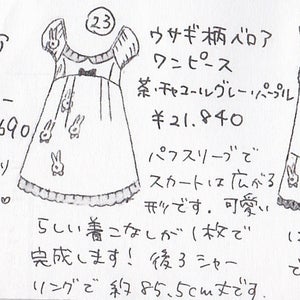 23
ウサギ柄ベロア
ワンピース
茶・チャコールグレー・パープル
¥21.840
パフスリーブで
スカートは広がる
形です。可愛い
らしい着こなしが1枚で
完成します！後ろシャー
リングで約85.5cm丈です。
690